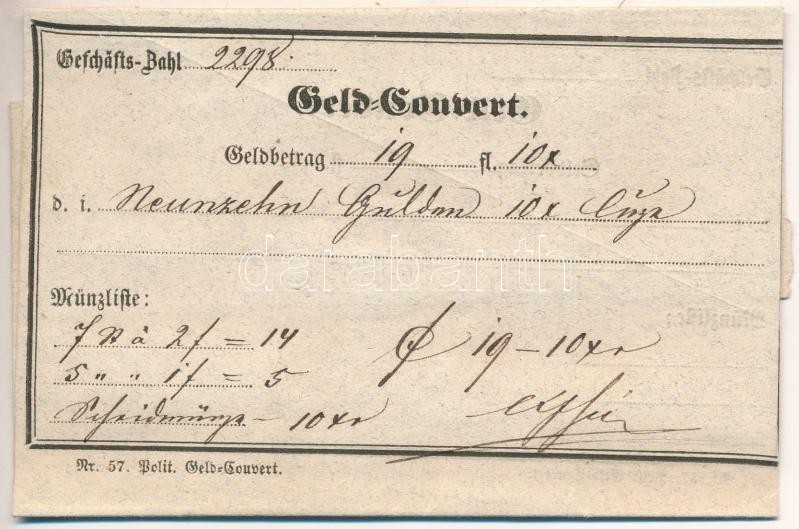 Geschäfts-Zahl 2298.
Geld-Couvert.
Geldbetrag 19 fl. 10x
d. i. Neunzehn Gulden 10x
darabanth
Münzliste:
7 St à 2f = 14
5 " " 1f = 5
Scheidmünze - 10xr
19 - 10xr
Nr. 57. Polit. Geld-Couvert.